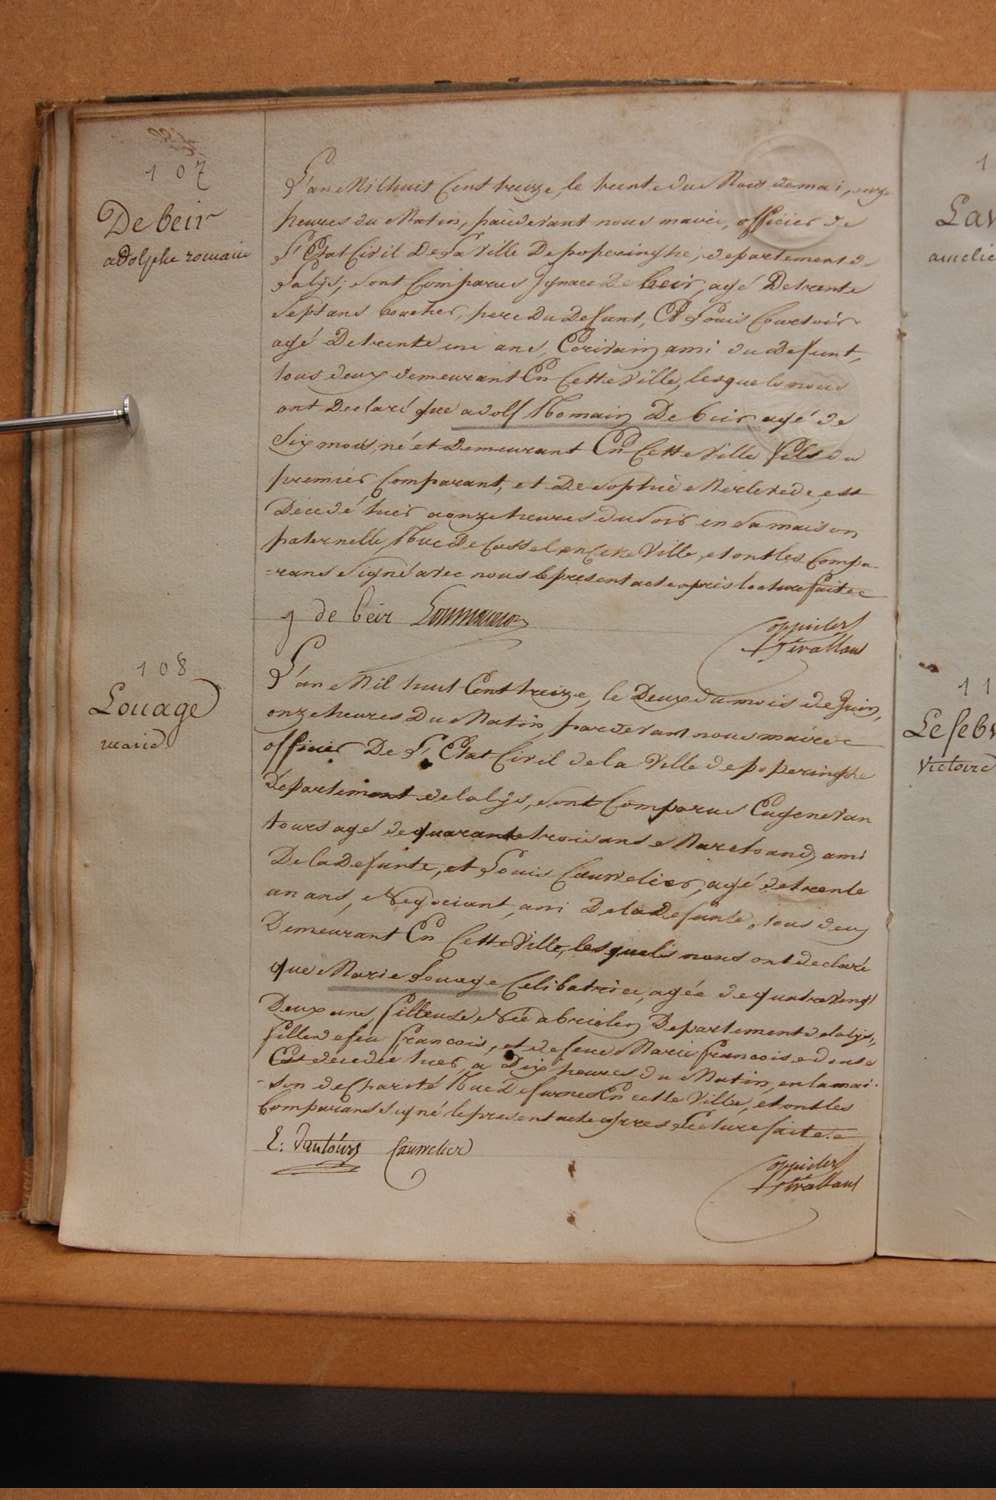 107
De beir
adolphe romain
L'an Mil huit Cent treize, le trente du Mois de mai, onze
heures du Matin, pardevant nous maire, officier de
L'Etat Civil De La Ville De poperinghe, departement de
La lys, sont Comparus Ignace De beir, agé De trente
Sept ans boucher, pere Du Defunt, Et Louis
agé De trente un ans, Ecrivain ami du defunt,
tous deux demeurant En Cette Ville, lesquels nous
ont Declaré que adolf Romain De beir agé de
Six mois, né et Demeurant En Cette Ville fils du
premier Comparant, et De Sophie, est
Decedé hier a onze heures du Soir en Sa maison
paternelle, Rue De Cassel en Cette Ville, et ont les Compa-
-rans Signé avec nous le present acte apres lecture faite
J de beir
108
Louage
marie
L'an Mil huit Cent treize, le Deux du mois de Juin,
onze heures Du Matin, pardevant nous maire
officier De L'Etat Civil de la Ville de poperinghe
Departement de la lys, sont Comparus Eugene Van
tours agé de quarante trois ans Marchand, ami
De la Defunte, et Louis Cauwelier, agé de trente
un ans, Negociant, ami De la Defunte, tous deux
Demeurant En Cette Ville, lesquels nous ont declaré
que Marie Louage Celibatrice, agée de quatre Vingt
Deux ans, fileuse, Née a brielen Departement de la lys,
fille de feu francois, et de feue Marie francoise
Est decedée hier, a Dix heures du Matin, en la mai-
-son de Charité Rue De furnes En cette Ville, et ont les
Comparans Signé le present acte apres Lecture faite
E. Vantours Cauwelier
1
Lav
amelie
11
Lefebv
Victoire